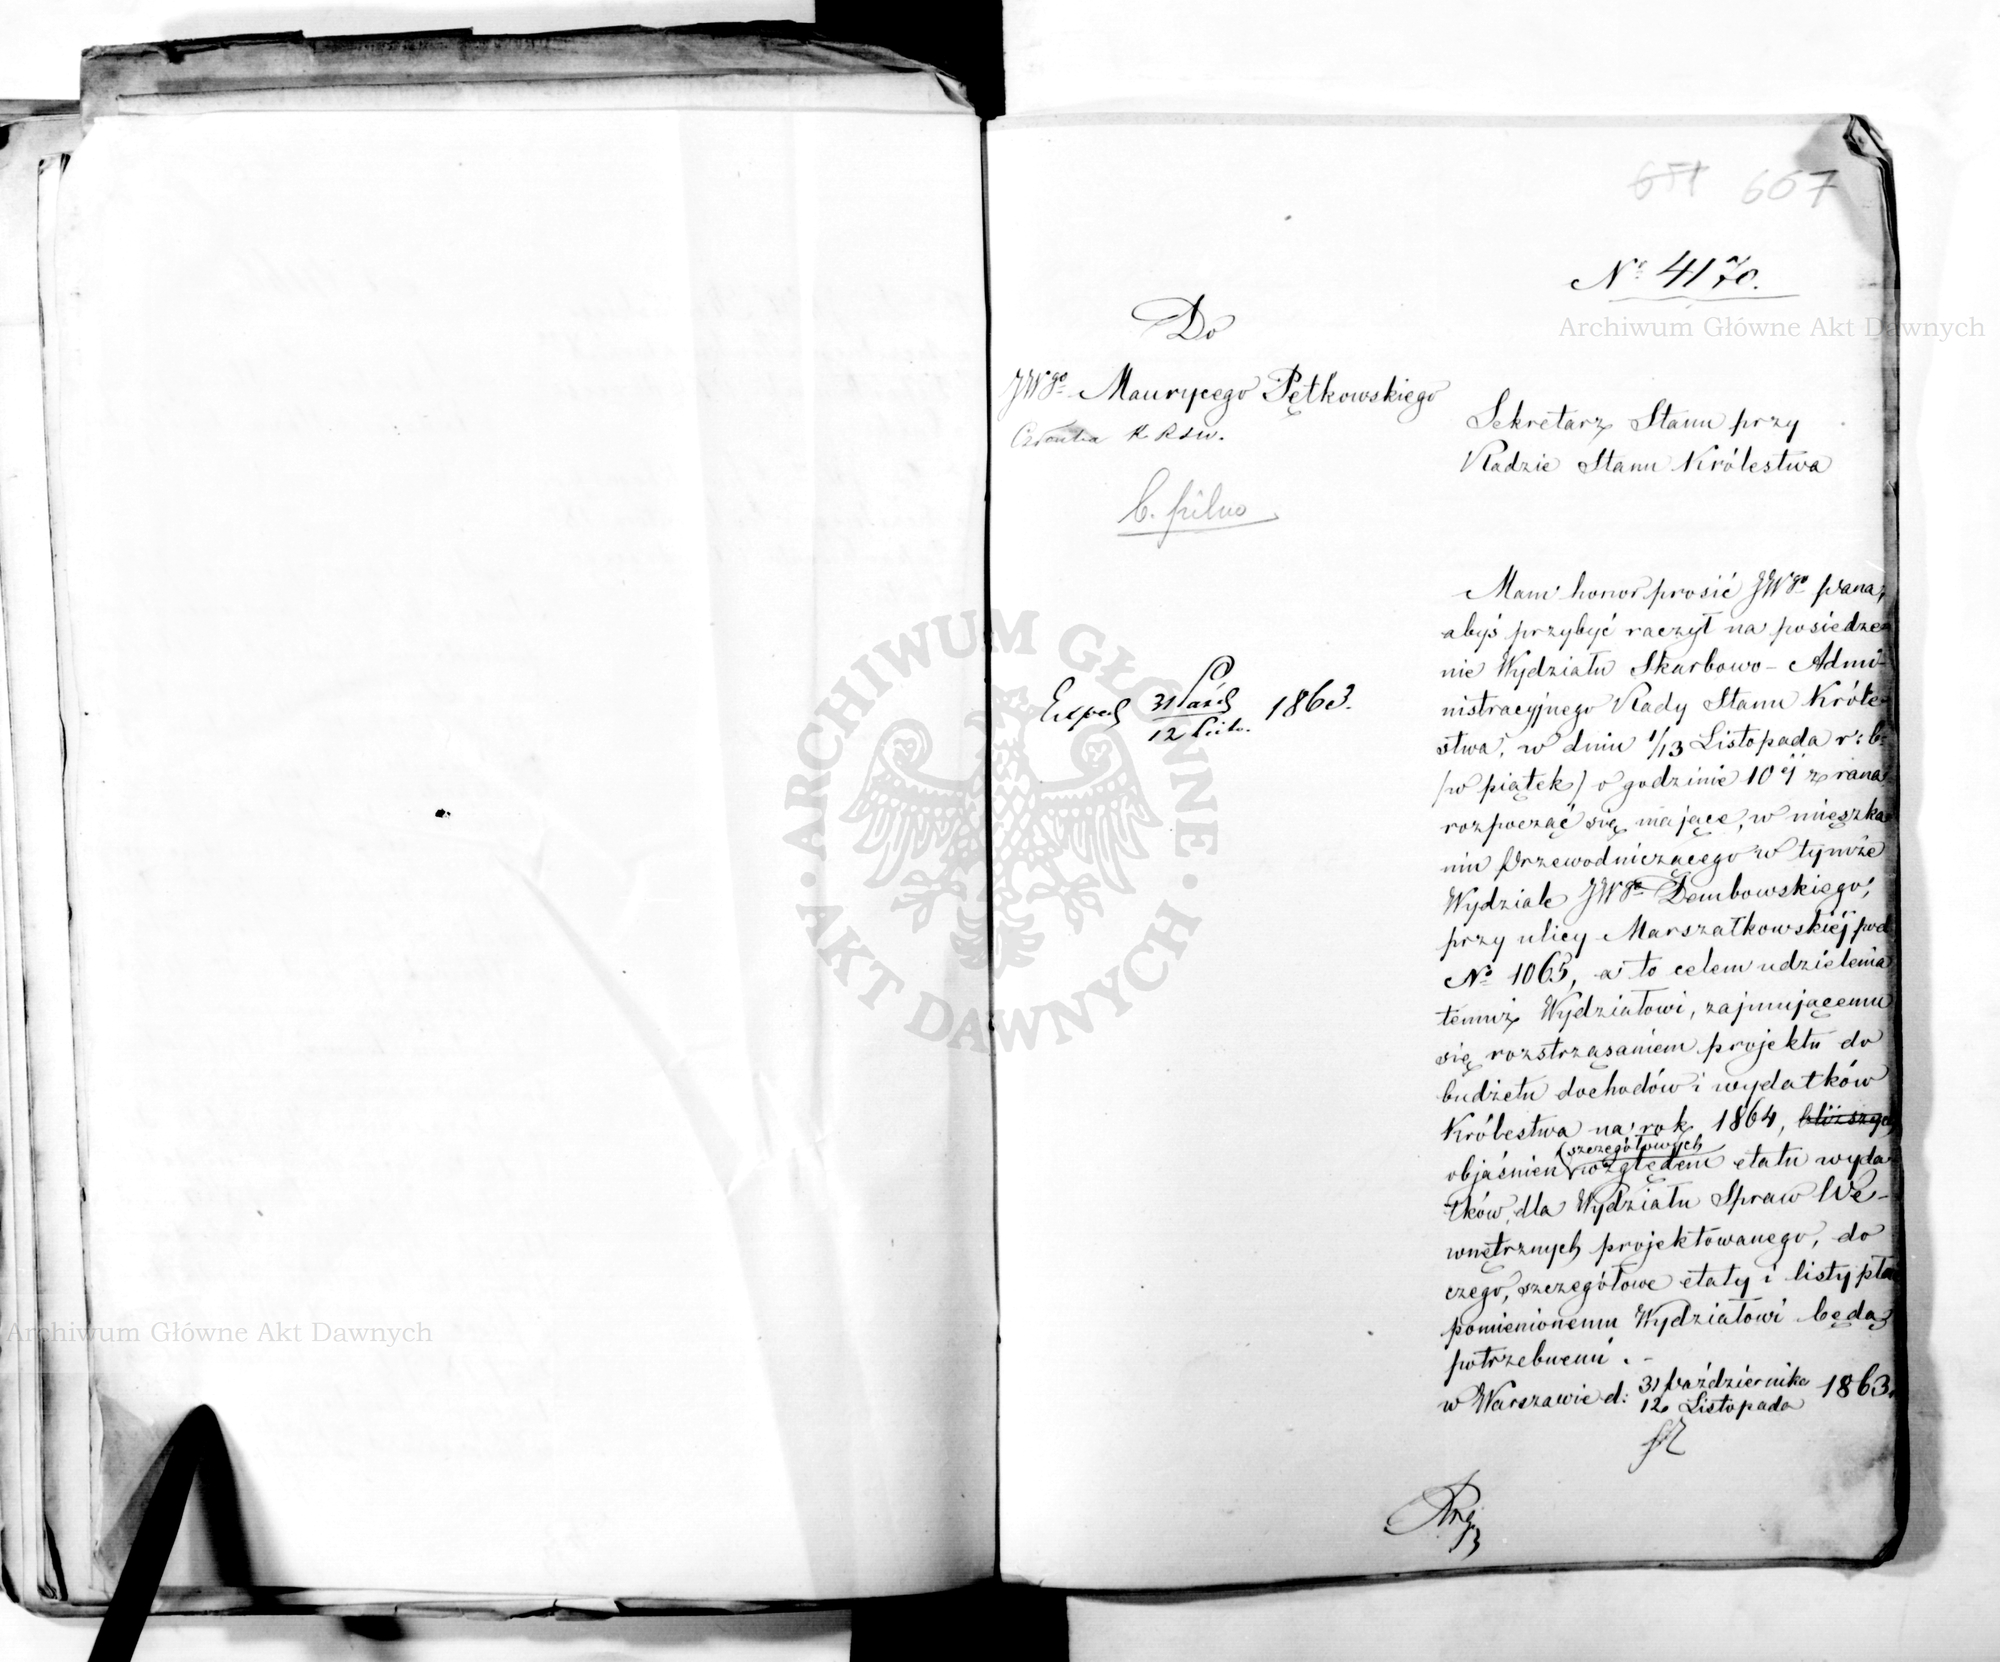 651 667
№ 4170.
Do
JWgo Maurycego Pętkowskiego
Członka K R S W.
b. pilno
Exped 31 Paźd 1863.
12 Listo.
Sekretarz Stanu przy
Radzie Stanu Królestwa
Mam honor prosić JWgo pana,
abyś przybyć raczył na posiedze-
nie Wydziału Skarbowo-Admi-
nistracyjnego Rady Stanu Króle-
stwa, w dniu 1/13 Listopada r: b:
/w piątek/ o godzinie 10ej z rana
rozpocząć się mające, w mieszka-
niu Przewodniczącego w tymże
Wydziale JWgo Dembowskiego,
przy ulicy Marszałkowskiej pod
№ 1065, a to celem udzielenia
temuż Wydziałowi, zajmującemu
się rozstrząsaniem projektu do
budżetu dochodów i wydatków
Królestwa na rok 1864, bliższych
szczegółowych
objaśnień względem etatu wyda-
tków, dla Wydziału Spraw We-
wnętrznych projektowanego, do
czego, szczegółowe etaty i listy płac
pomienionemu Wydziałowi będą
potrzebnemi. -
w Warszawie d: 31 Października 1863.
12 Listopada
Archiwum Główne Akt Dawnych
Archiwum Główne Akt Dawnych
ARCHIWUM GŁÓWNE
AKT DAWNYCH